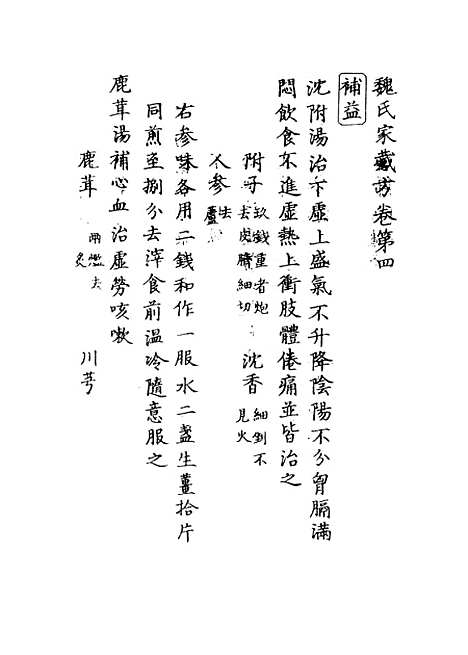 魏氏家藏方卷第四
補益
沈附湯治下虛上盛氣不升降陰陽不分胷膈滿
悶飲食不進虛熱上衝肢體倦痛並皆治之
附子玖錢重者炮去皮臍細切 沈香細剉不見火
人參去蘆
右參味各用二錢和作一服水二盞生薑拾片
同煎至捌分去滓食前溫冷隨意服之
鹿茸湯補心血治虛勞咳嗽
鹿茸兩燎去炙 川芎